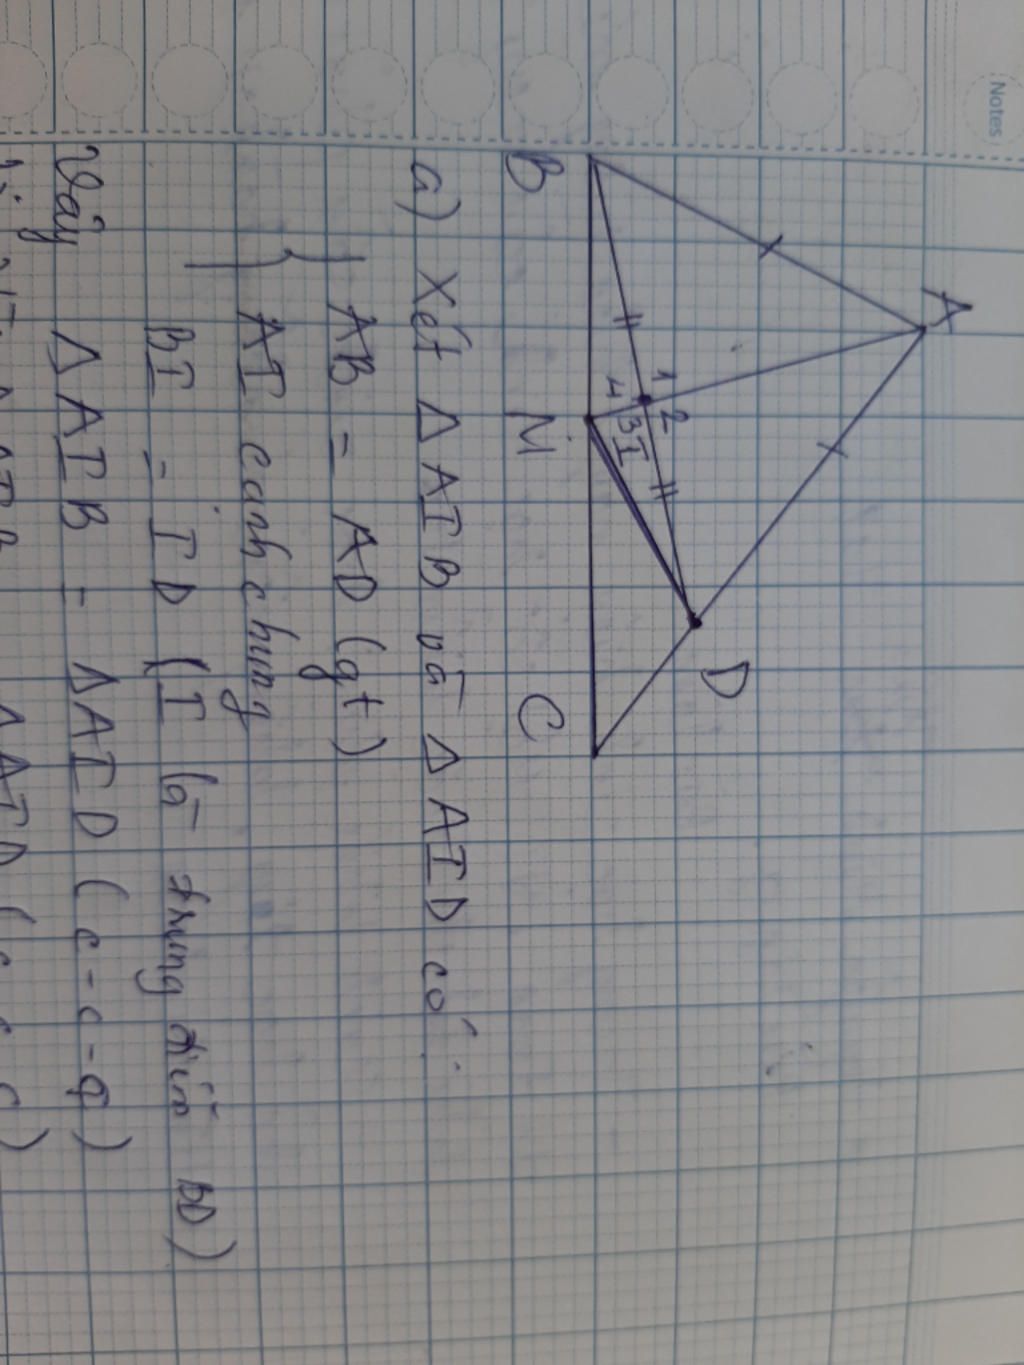 Notes
A
1
2
4
3
I
D
B
M
C
a) Xét Δ AIB và Δ AID có
AB = AD (gt)
AI cạnh chung
BI = ID (I là trung điểm BD)
Vậy Δ AIB = Δ AID (c-c-g)